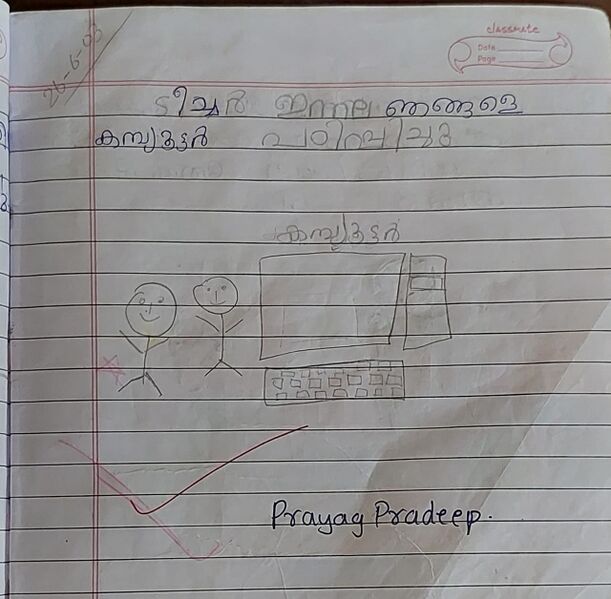 classmate
Date
Page
ടീച്ചർ ഇന്നലെ ഞങ്ങളെ
കമ്പ്യൂട്ടർ പഠിപ്പിച്ചു
കമ്പ്യൂട്ടർ
Prayag Pradeep.